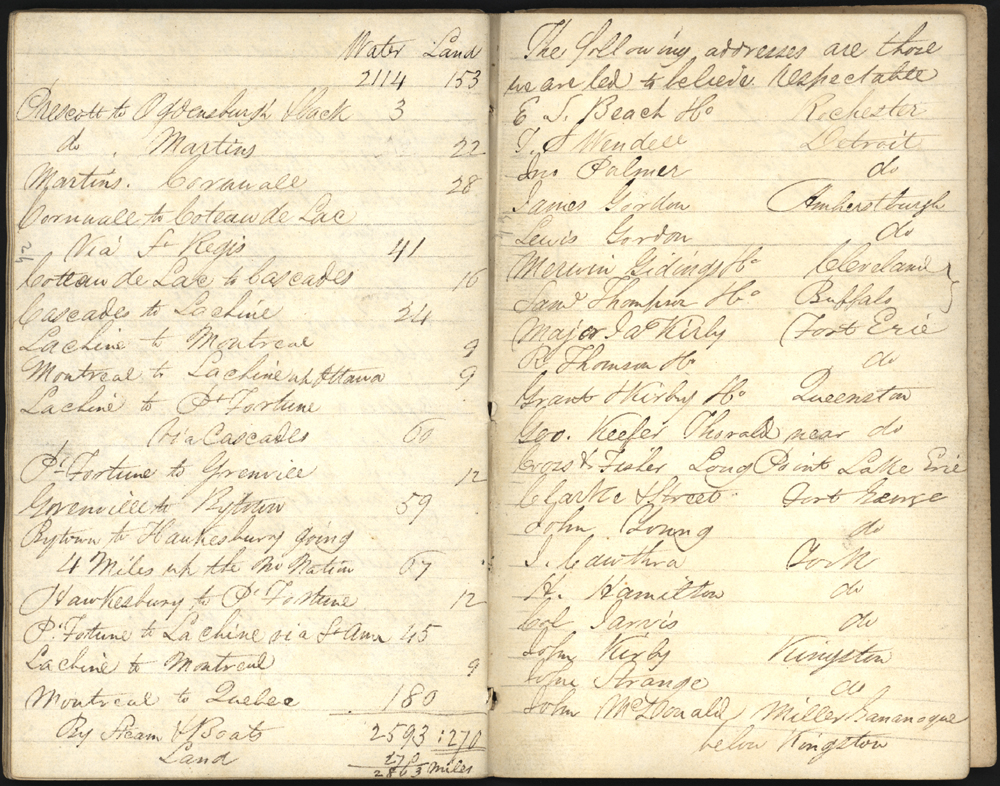 Water Land
2114 153
Prescott to Ogdensburgh & back 3
do . Martins 22
Martins. Cornwall 28
Cornwall to Coteau de Lac
Via St Regis 41
Coteau de Lac to Cascades 16
Cascades to Lachine 24
Lachine to Montreal 9
Montreal to Lachine up Ottawa 9
Lachine to Pt Fortune
via Cascades 60
Pt Fortune to Grenville 12
Grenville to Bytown 59
Bytown to Hawkesbury going
4 Miles up the Nation 67
Hawkesbury to Pt Fortune 12
Pt Fortune to Lachine via St Ann 45
Lachine to Montreal 9
Montreal to Quebec 180
By Steam & Boats 2593 : 270
Land 270
2863 Miles
The following addresses are those
we are led to believe respectable
E S. Beach & Co Rochester
T. S Wendell Detroit
Jno Palmer do
James Gordon Amherstburgh
Lewis Gordon do
Merwin Gidings & Co Cleveland
Saml Thompson & Co Buffalo
Major Jas Kirby Fort Erie
Thomson & Co do
Grant & Kirby & Co Queenston
Geo. Keefer Thorald near do
Cross & Fisher Long Point Lake Erie
Clarke & Street Fort George
John Young do
J. Cawthra York
H. Hamilton do
Col Jarvis do
John Kirby Kingston
John Strange do
John McDonald Miller Gananoque
below Kingston